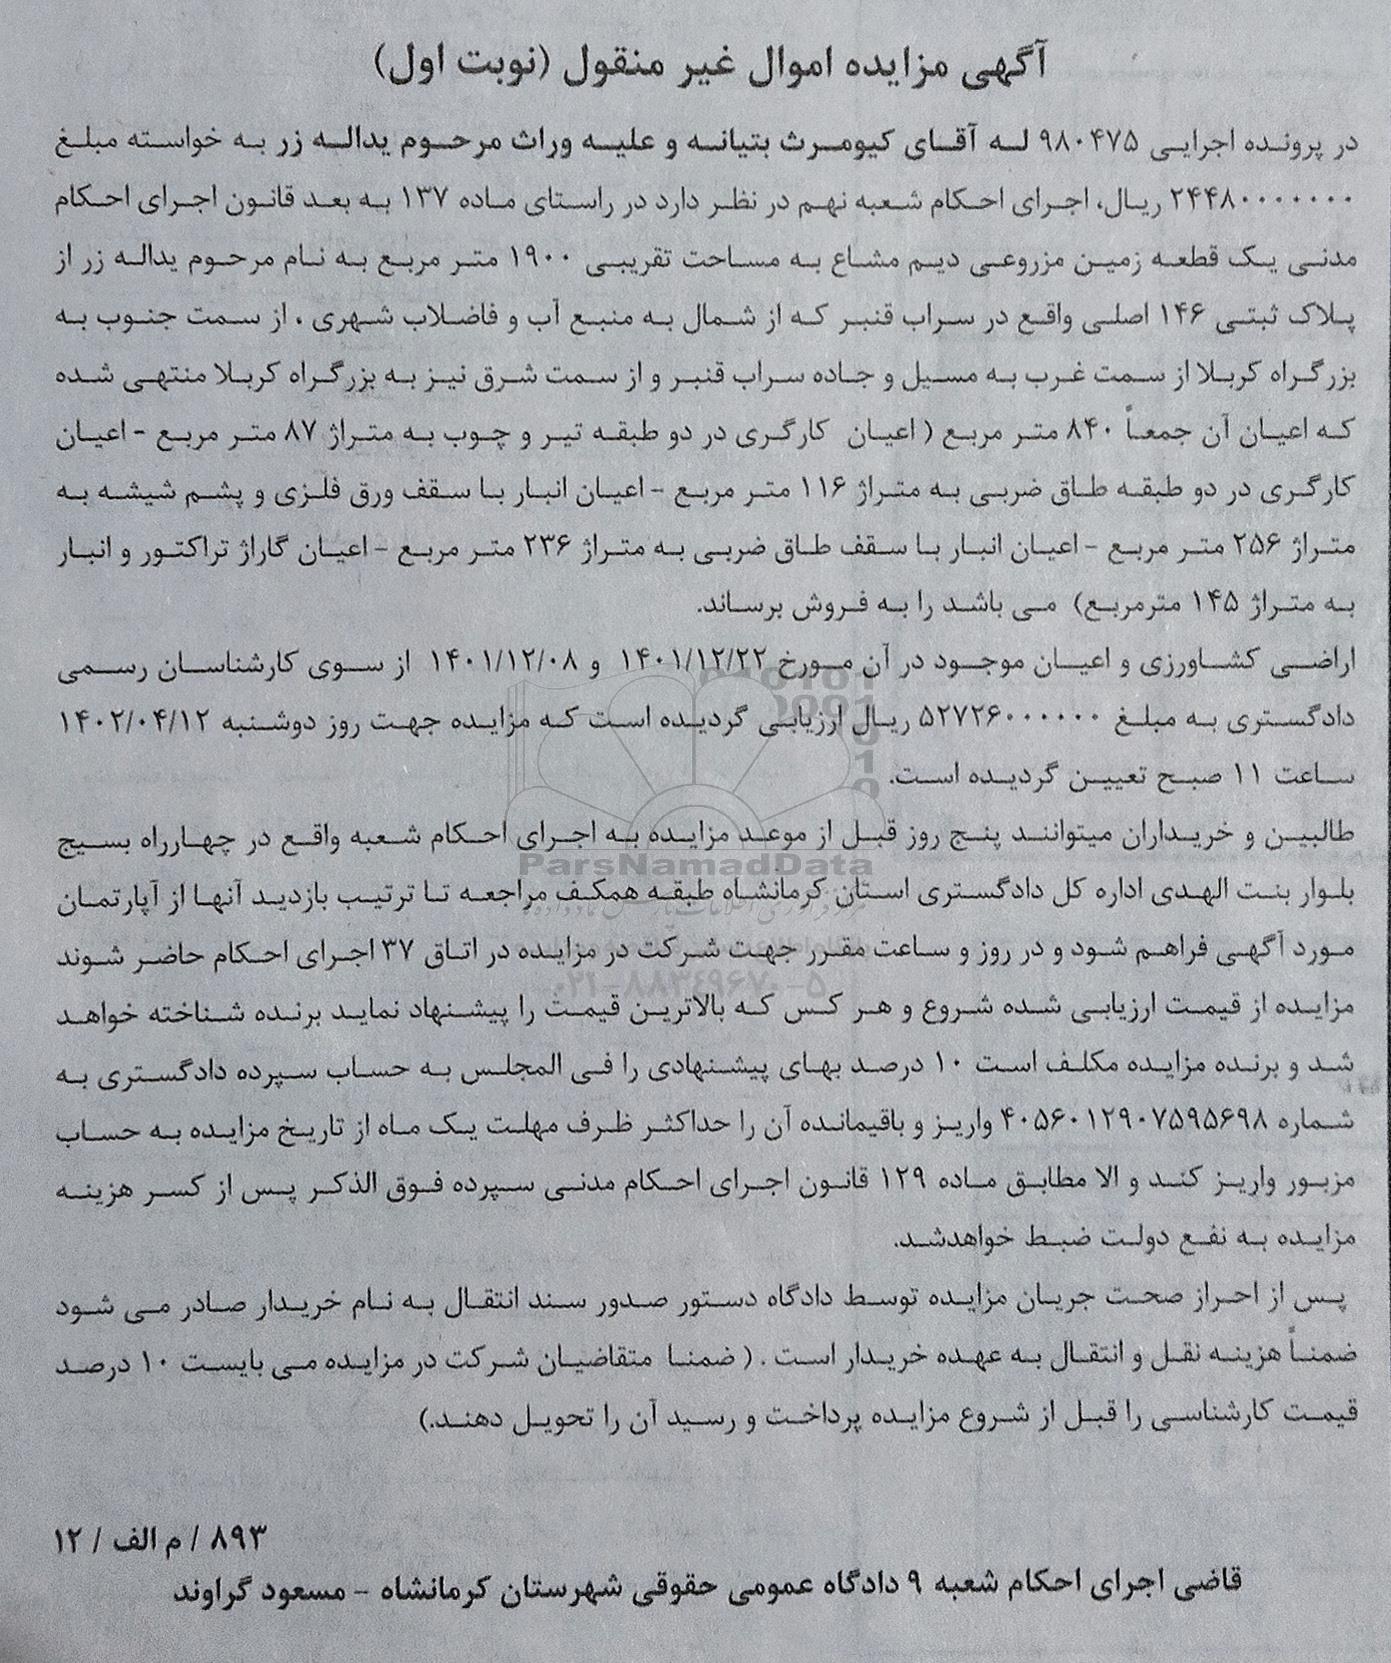 آگهی مزایده اموال غیر منقول (نوبت اول)
در پرونده اجرایی ۹۸۰۴۷۵ له آقای کیومرث بتیانه و علیه وراث مرحوم یداله زر به خواسته مبلغ
۲۴۴۸۰۰۰۰۰۰۰ ریال، اجرای احکام شعبه نهم در نظر دارد در راستای ماده ۱۳۷ به بعد قانون اجرای احکام
مدنی یک قطعه زمین مزروعی دیم مشاع به مساحت تقریبی ۱۹۰۰ متر مربع به نام مرحوم یداله زر از
پلاک ثبتی ۱۴۶ اصلی واقع در سراب قنبر که از شمال به منبع آب و فاضلاب شهری ، از سمت جنوب به
بزرگراه کربلا از سمت غرب به مسیل و جاده سراب قنبر و از سمت شرق نیز به بزرگراه کربلا منتهی شده
که اعیان آن جمعاً ۸۴۰ متر مربع ( اعیان کارگری در دو طبقه تیر و چوب به متراژ ۸۷ متر مربع - اعیان
کارگری در دو طبقه طاق ضربی به متراژ ۱۱۶ متر مربع - اعیان انبار با سقف ورق فلزی و پشم شیشه به
متراژ ۲۵۶ متر مربع - اعیان انبار با سقف طاق ضربی به متراژ ۲۳۶ متر مربع - اعیان گاراژ تراکتور و انبار
به متراژ ۱۴۵ مترمربع) می باشد را به فروش برساند.
اراضی کشاورزی و اعیان موجود در آن مورخ ۱۴۰۱/۱۲/۲۲ و ۱۴۰۱/۱۲/۰۸ از سوی کارشناسان رسمی
دادگستری به مبلغ ۵۲۷۲۶۰۰۰۰۰۰ ریال ارزیابی گردیده است که مزایده جهت روز دوشنبه ۱۴۰۲/۰۴/۱۲
ساعت ۱۱ صبح تعیین گردیده است.
طالبین و خریداران میتوانند پنج روز قبل از موعد مزایده به اجرای احکام شعبه واقع در چهارراه بسیج
ParsNamadData
بلوار بنت الهدی اداره کل دادگستری استان کرمانشاه طبقه همکف مراجعه تا ترتیب بازدید آنها از آپارتمان
مورد آگهی فراهم شود و در روز و ساعت مقرر جهت شرکت در مزایده در اتاق ۳۷ اجرای احکام حاضر شوند
۰۲۱-۸۸۳۴۹۶۷۰-۵
مزایده از قیمت ارزیابی شده شروع و هر کس که بالاترین قیمت را پیشنهاد نماید برنده شناخته خواهد
شد و برنده مزایده مکلف است ۱۰ درصد بهای پیشنهادی را فی المجلس به حساب سپرده دادگستری به
شماره ۴۰۵۶۰۱۲۹۰۷۵۹۵۶۹۸ واریز و باقیمانده آن را حداکثر ظرف مهلت یک ماه از تاریخ مزایده به حساب
مزبور واریز کند و الا مطابق ماده ۱۲۹ قانون اجرای احکام مدنی سپرده فوق الذکر پس از کسر هزینه
مزایده به نفع دولت ضبط خواهدشد.
پس از احراز صحت جریان مزایده توسط دادگاه دستور صدور سند انتقال به نام خریدار صادر می شود
ضمناً هزینه نقل و انتقال به عهده خریدار است . ( ضمنا متقاضیان شرکت در مزایده می بایست ۱۰ درصد
قیمت کارشناسی را قبل از شروع مزایده پرداخت و رسید آن را تحویل دهند.)
۸۹۳ / م الف / ۱۲
قاضی اجرای احکام شعبه ۹ دادگاه عمومی حقوقی شهرستان کرمانشاه - مسعود گراوند